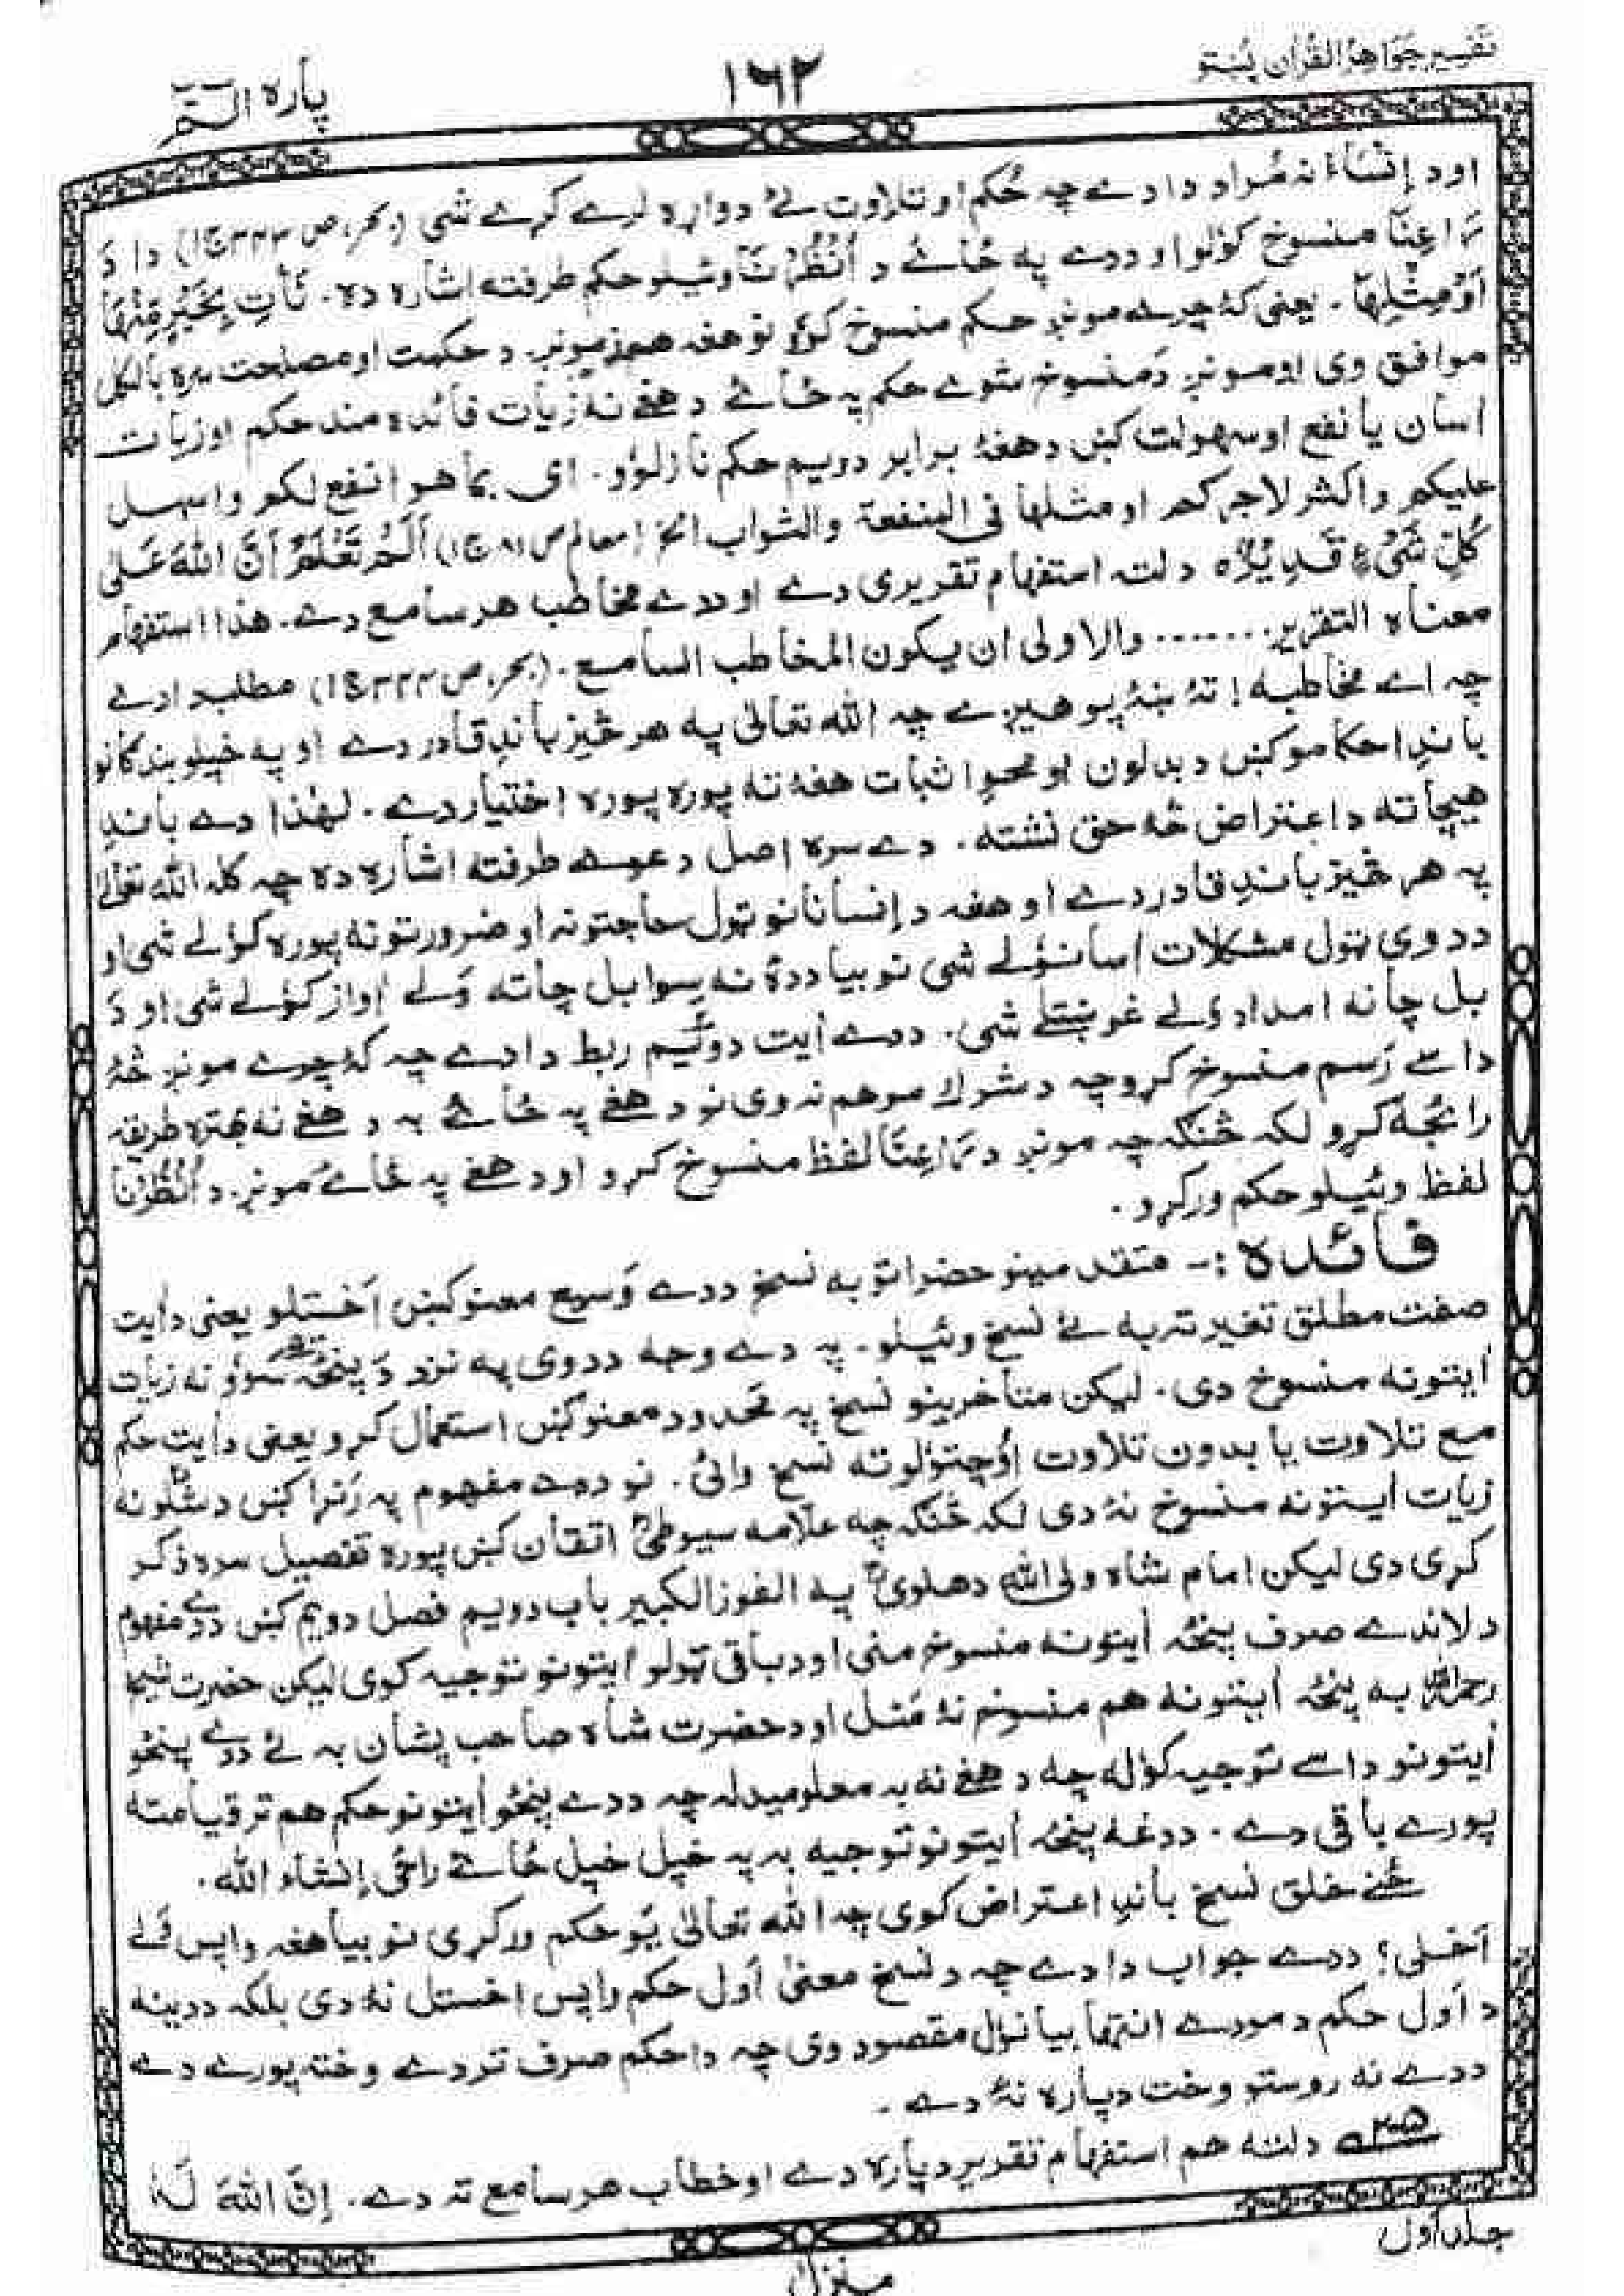 تفسیر جواهر القرآن پښتو
۱۶۲
پاره الٓمّٓ
اود إنساءنه مُراد دا دے چه حُکم او تلاوت ئے دواړه لرے کړے شی (بحر، ص ۳۴۳ ج۱) دا دَ
رَاعِنَا منسوخ کولو او ددے په ځائے د اُنْظُرْنَا وئیلو حکم طرفته اشاره ده. نَأْتِ بِخَيْرٍ مِّنْهَا
أَوْ مِثْلِهَا. یعنی کۀ چرے مونږ حکم منسوخ کوؤ نو هغه هم زمونږ د حکمت او مصلحت سره بالکل
موافق وی او مونږ دَ منسوخ شوے حکم په ځائے د هغے نه زیات فائده مند حکم او زیات
اسان یا نفع او سهولت کښ د هغۀ برابر دویم حکم نازلوؤ. ای بما هو انفع لکم واسهل
علیکم واکثر لاجرکم او مثلها فی المنفعة والثواب الخ (معالم ص ۸۱ ج۱) أَلَمْ تَعْلَمْ أَنَّ اللهَ عَلٰی
کُلِّ شَیْءٍ قَدِیْرٌ۝ دلته استفهام تقریری دے او ددے مخاطب هر سامع دے. هذا استفهام
معناه التقریر....... والاولی ان یکون المخاطب السامع. (بحر، ص ۳۴۴ ج۱) مطلب دا دے
چه اے مخاطبه! تۀ ښۀ پوهیږے چه الله تعالیٰ په هر څیز باندِ قادر دے او په خپلو بندګانو
باندِ احکامو کښ د بدلون او محوِ اثبات هغۀ ته پوره پوره اختیار دے. لهٰذا دے باندِ
هیچاته د اعتراض څه حق نشته. دے سره اصل دعوے طرفته اشاره ده چه کله الله تعالیٰ
په هر څیز باندِ قادر دے او هغه د إنسانانو ټول حاجتونه او ضرورتونه پوره کولے شی او
ددوی ټول مشکلات اسانولے شی نو بیا ددۀ نه سوا بل چاته وَلے اواز کولے شی او دَ
بل چا نه امداد ولے غوښتلے شی. ددے أیت دوئیم ربط دا دے چه کۀ چرے مونږ څۀ
داسے رَسم منسوخ کړو چه د شرک سر هم نه وی نو د هغے په ځائے به د هغے نه بهتره طریقه
رائجه کړو لکه څنګه چه مونږ د رَاعِنَا لفظ منسوخ کړو او د هغے په ځائے مونږ د اُنْظُرْنَا
لفظ وئیلو حکم ورکړو.
فائده:- متقدمینو حضراتو به نسخ ددے وَسیع معنو کښ اَخستلو یعنی د أیت
صفت مطلق تغیر ته به ئے نسخ وئیلو. په دے وجه ددوی په نزد دَ پنځه سوؤ نه زیات
أیتونه منسوخ دی. لیکن متأخرینو نسخ په محدود معنو کښ استعمال کړو یعنی د أیت حکم
مع تلاوت یا بدون تلاوت اُوچتولو ته نسخ وائی. نو ددے مفهوم په رَنړا کښ د شلو نه
زیات أیتونه منسوخ نۀ دی لکه څنګه چه علّامه سیوطیؒ اتقان کښ پوره تفصیل سره ذکر
کړی دی لیکن امام شاه ولی الله دهلویؒ په الفوز الکبیر باب دویم فصل دویم کښ ددے مفهوم
د لاندے صرف پنځه أیتونه منسوخ منی او د باقی ټولو أیتونو توجیه کوی لیکن حضرت شیخ
رحمه الله به پنځه أیتونه هم منسوخ نۀ مَنل او د حضرت شاه صاحب پشان به ئے ددے پنځو
أیتونو داسے توجیه کوله چه د هغے نه به معلومیدله چه ددے پنځو أیتونو حکم هم تر قیامته
پورے باقی دے. ددغه پنځه أیتونو توجیه به په خپل خپل ځائے راځی إنشاء الله.
ځنے خلق نسخ باندِ اعتراض کوی چه الله تعالیٰ یو حکم ورکړی نو بیا هغه واپس وَلے
اَخلی؟ ددے جواب دا دے چه د نسخ معنیٰ اَول حکم واپس اخستل نۀ دی بلکه ددینه
د اَول حکم د مودے انتها بیانول مقصود وی چه دا حکم صرف تر دے وخته پورے دے
ددے نه روستو وخت دپاره نۀ دے.
۲۰۵ دلته هم استفهام تقریر دپاره دے او خطاب هر سامع ته دے. إِنَّ اللهَ لَهٗ
جلد اول
منزل